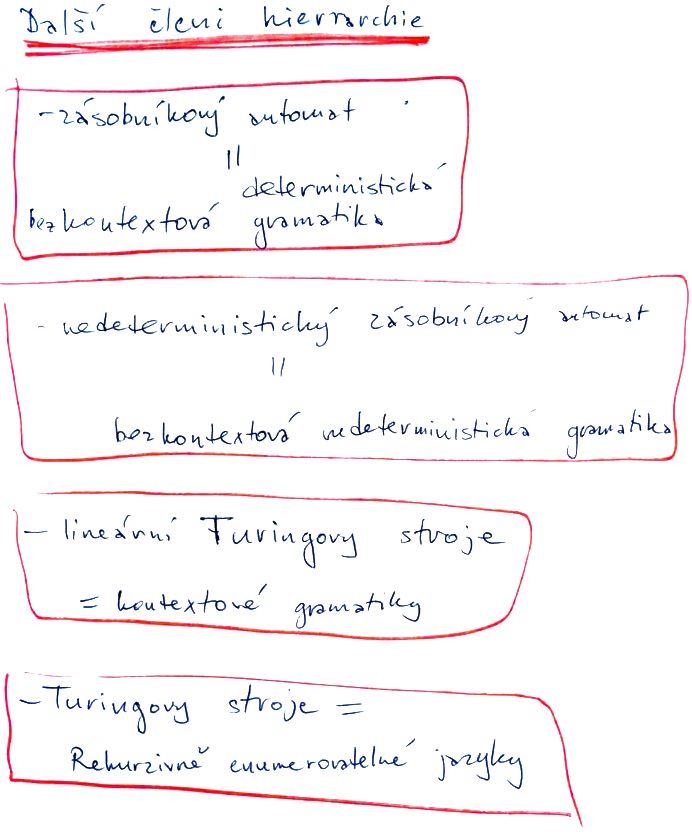 Další členi hierarchie
- zásobníkový automat
||
deterministická
bezkontextová gramatika
- nedeterministický zásobníkový automat
||
bezkontextová nedeterministická gramatika
- lineární Turingovy stroje
= kontextové gramatiky
- Turingovy stroje =
Rekurzivně enumerovatelné jazyky